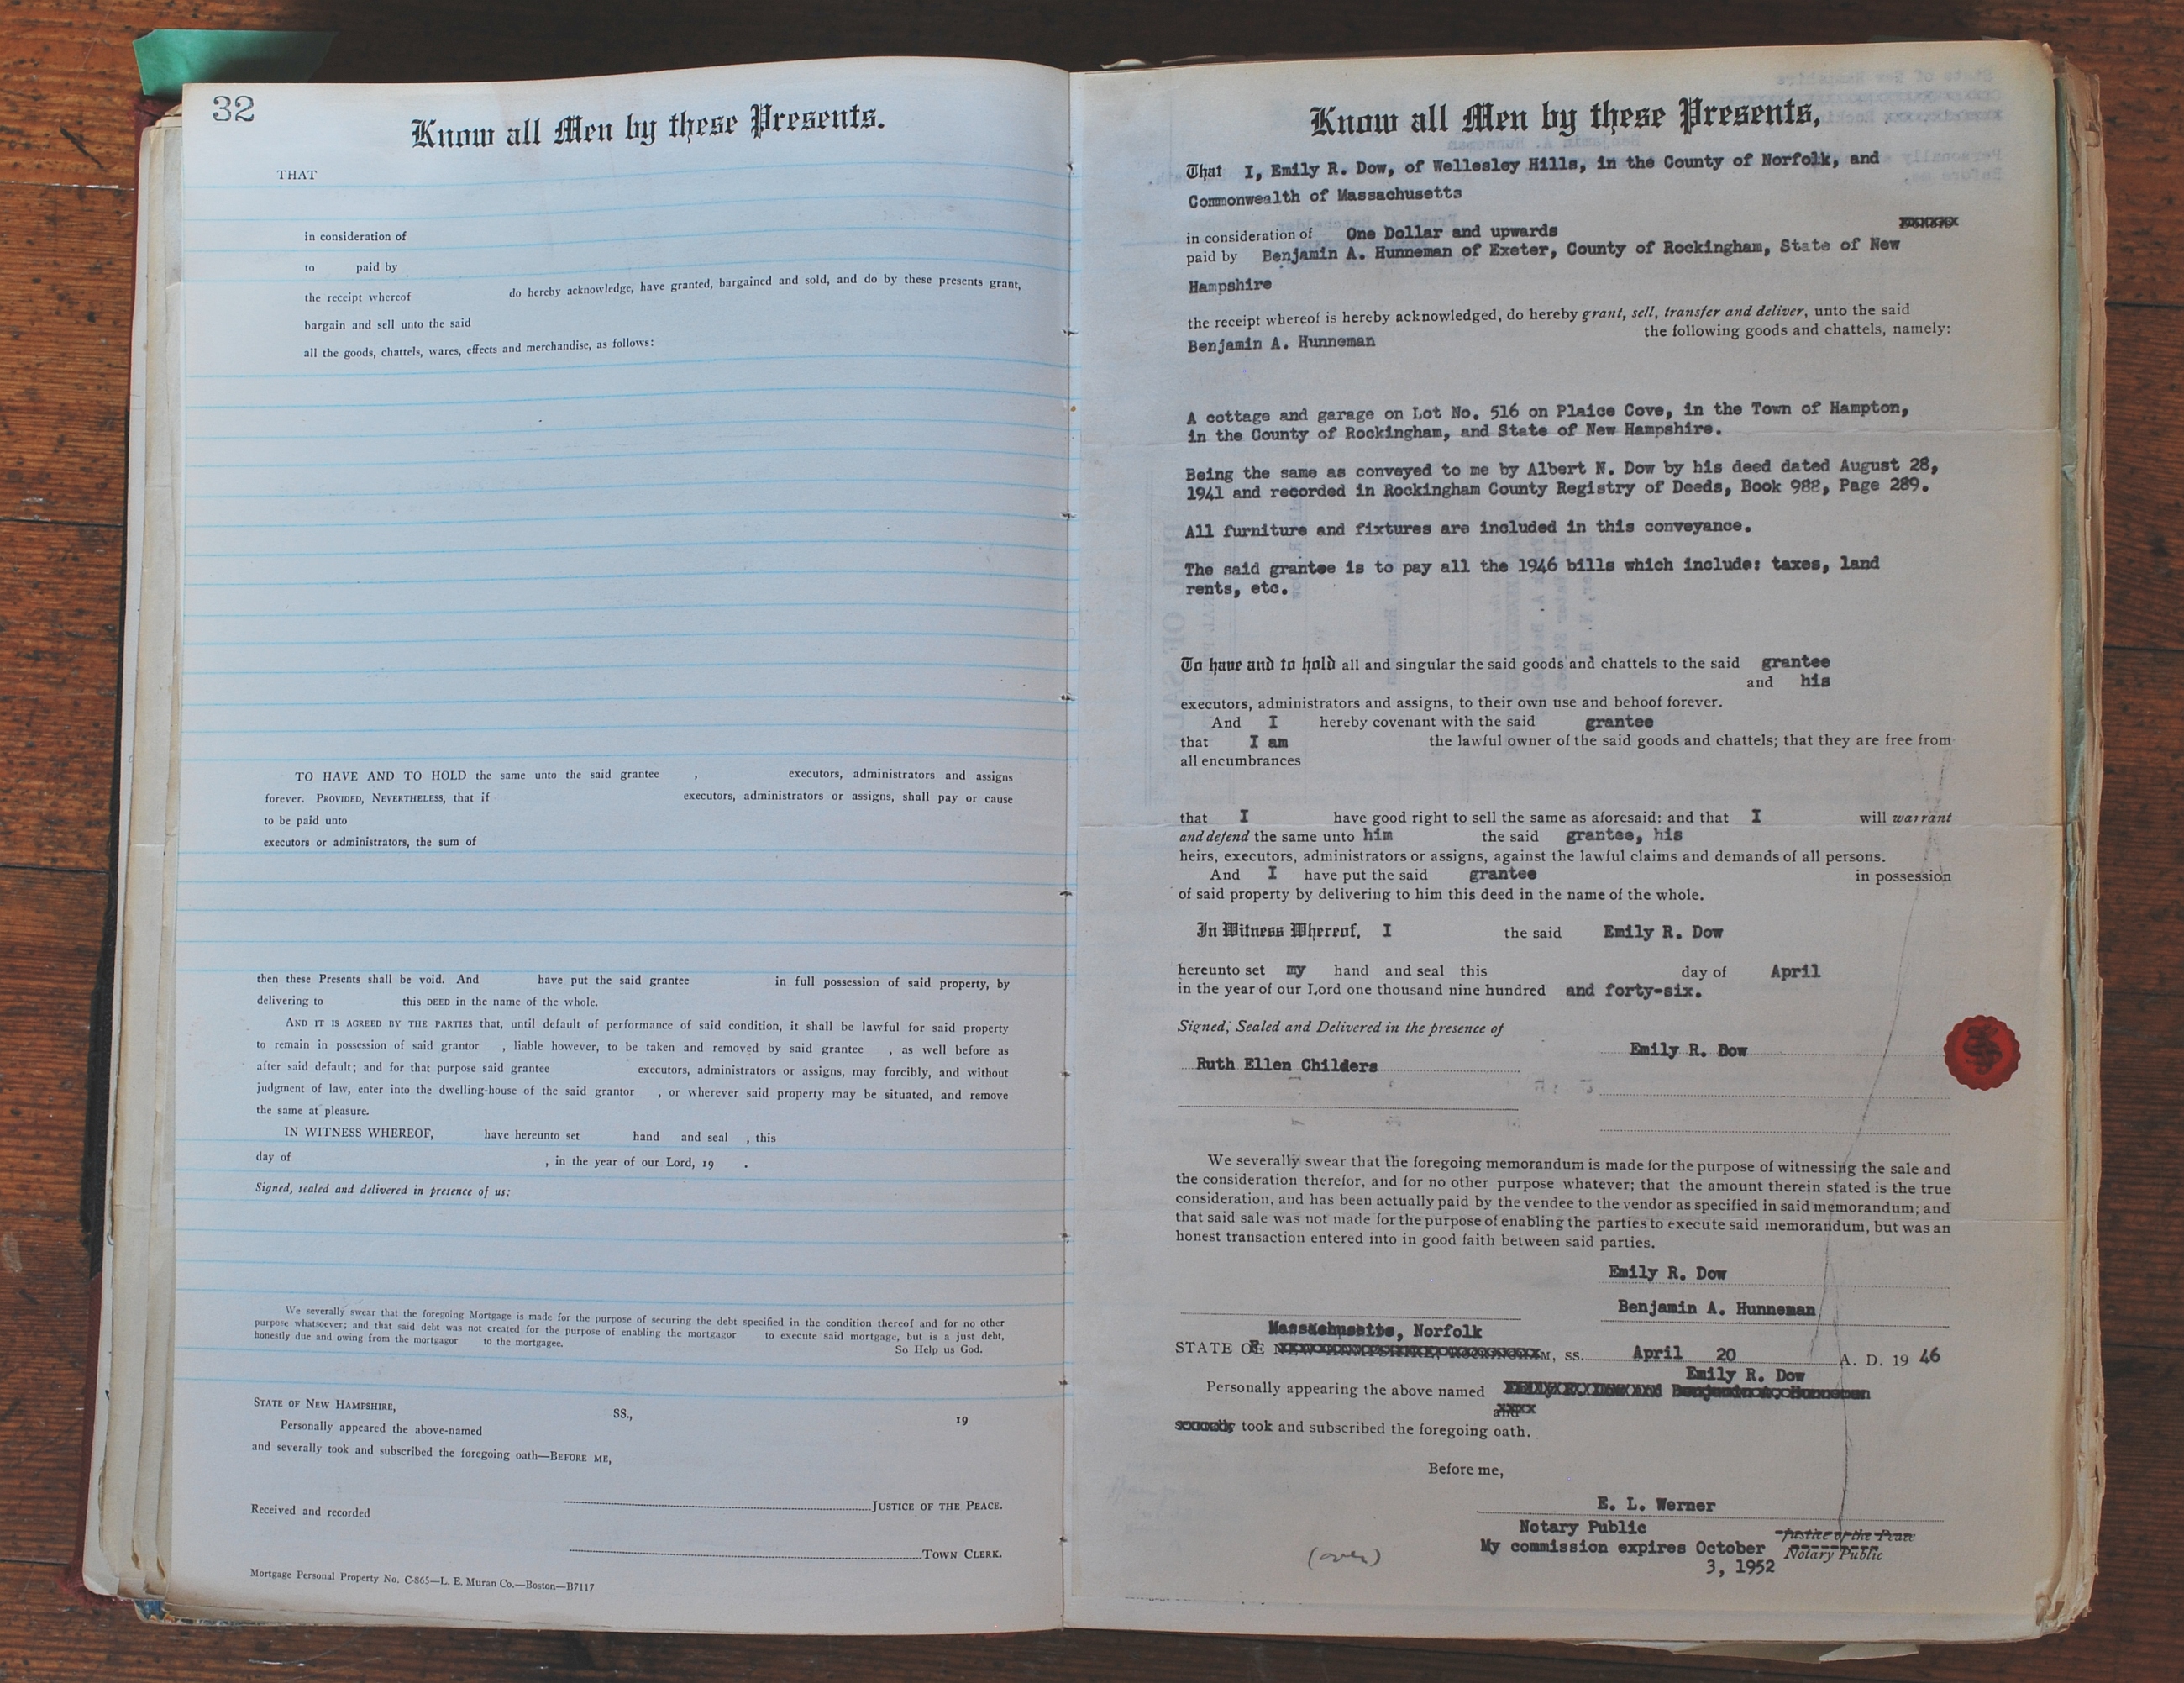 32
Know all Men by these Presents.
THAT
in consideration of
to paid by
the receipt whereof do hereby acknowledge, have granted, bargained and sold, and do by these presents grant,
bargain and sell unto the said
all the goods, chattels, wares, effects and merchandise, as follows:
TO HAVE AND TO HOLD the same unto the said grantee , executors, administrators and assigns
forever. PROVIDED, NEVERTHELESS, that if executors, administrators or assigns, shall pay or cause
to be paid unto
executors or administrators, the sum of
then these Presents shall be void. And have put the said grantee in full possession of said property, by
delivering to this DEED in the name of the whole.
AND IT IS AGREED BY THE PARTIES that, until default of performance of said condition, it shall be lawful for said property
to remain in possession of said grantor , liable however, to be taken and removed by said grantee , as well before as
after said default; and for that purpose said grantee executors, administrators or assigns, may forcibly, and without
judgment of law, enter into the dwelling-house of the said grantor , or wherever said property may be situated, and remove
the same at pleasure.
IN WITNESS WHEREOF, have hereunto set hand and seal , this
day of , in the year of our Lord, 19 .
Signed, sealed and delivered in presence of us:
We severally swear that the foregoing Mortgage is made for the purpose of securing the debt specified in the condition thereof and for no other
purpose whatsoever; and that said debt was not created for the purpose of enabling the mortgagor to execute said mortgage, but is a just debt,
honestly due and owing from the mortgagor to the mortgagee. So Help us God.
STATE OF NEW HAMPSHIRE, SS., 19
Personally appeared the above-named
and severally took and subscribed the foregoing oath—BEFORE ME,
JUSTICE OF THE PEACE.
Received and recorded
TOWN CLERK.
Mortgage Personal Property No. C-865—L. E. Muran Co.—Boston—B7117
Know all Men by these Presents,
That I, Emily R. Dow, of Wellesley Hills, in the County of Norfolk, and
Commonwealth of Massachusetts
in consideration of One Dollar and upwards
paid by Benjamin A. Hunneman of Exeter, County of Rockingham, State of New
Hampshire
the receipt whereof is hereby acknowledged, do hereby grant, sell, transfer and deliver, unto the said
Benjamin A. Hunneman the following goods and chattels, namely:
A cottage and garage on Lot No. 516 on Plaice Cove, in the Town of Hampton,
in the County of Rockingham, and State of New Hampshire.
Being the same as conveyed to me by Albert N. Dow by his deed dated August 28,
1941 and recorded in Rockingham County Registry of Deeds, Book 988, Page 289.
All furniture and fixtures are included in this conveyance.
The said grantee is to pay all the 1946 bills which include: taxes, land
rents, etc.
To have and to hold all and singular the said goods and chattels to the said grantee
and his
executors, administrators and assigns, to their own use and behoof forever.
And I hereby covenant with the said grantee
that I am the lawful owner of the said goods and chattels; that they are free from
all encumbrances
that I have good right to sell the same as aforesaid; and that I will warrant
and defend the same unto him the said grantee, his
heirs, executors, administrators or assigns, against the lawful claims and demands of all persons.
And I have put the said grantee in possession
of said property by delivering to him this deed in the name of the whole.
In Witness Whereof, I the said Emily R. Dow
hereunto set my hand and seal this day of April
in the year of our Lord one thousand nine hundred and forty-six.
Signed, Sealed and Delivered in the presence of
Emily R. Dow
Ruth Ellen Childers
We severally swear that the foregoing memorandum is made for the purpose of witnessing the sale and
the consideration therefor, and for no other purpose whatever; that the amount therein stated is the true
consideration, and has been actually paid by the vendee to the vendor as specified in said memorandum; and
that said sale was not made for the purpose of enabling the parties to execute said memorandum, but was an
honest transaction entered into in good faith between said parties.
Emily R. Dow
Benjamin A. Hunneman
Massachusetts, Norfolk
STATE OF NEW HAMPSHIRE, ROCKINGHAM, ss. April 20 A. D. 19 46
Emily R. Dow
Personally appearing the above named Benjamin A. Hunneman
and
took and subscribed the foregoing oath.
Before me,
E. L. Werner
Notary Public Justice of the Peace
My commission expires October Notary Public
3, 1952
(over)